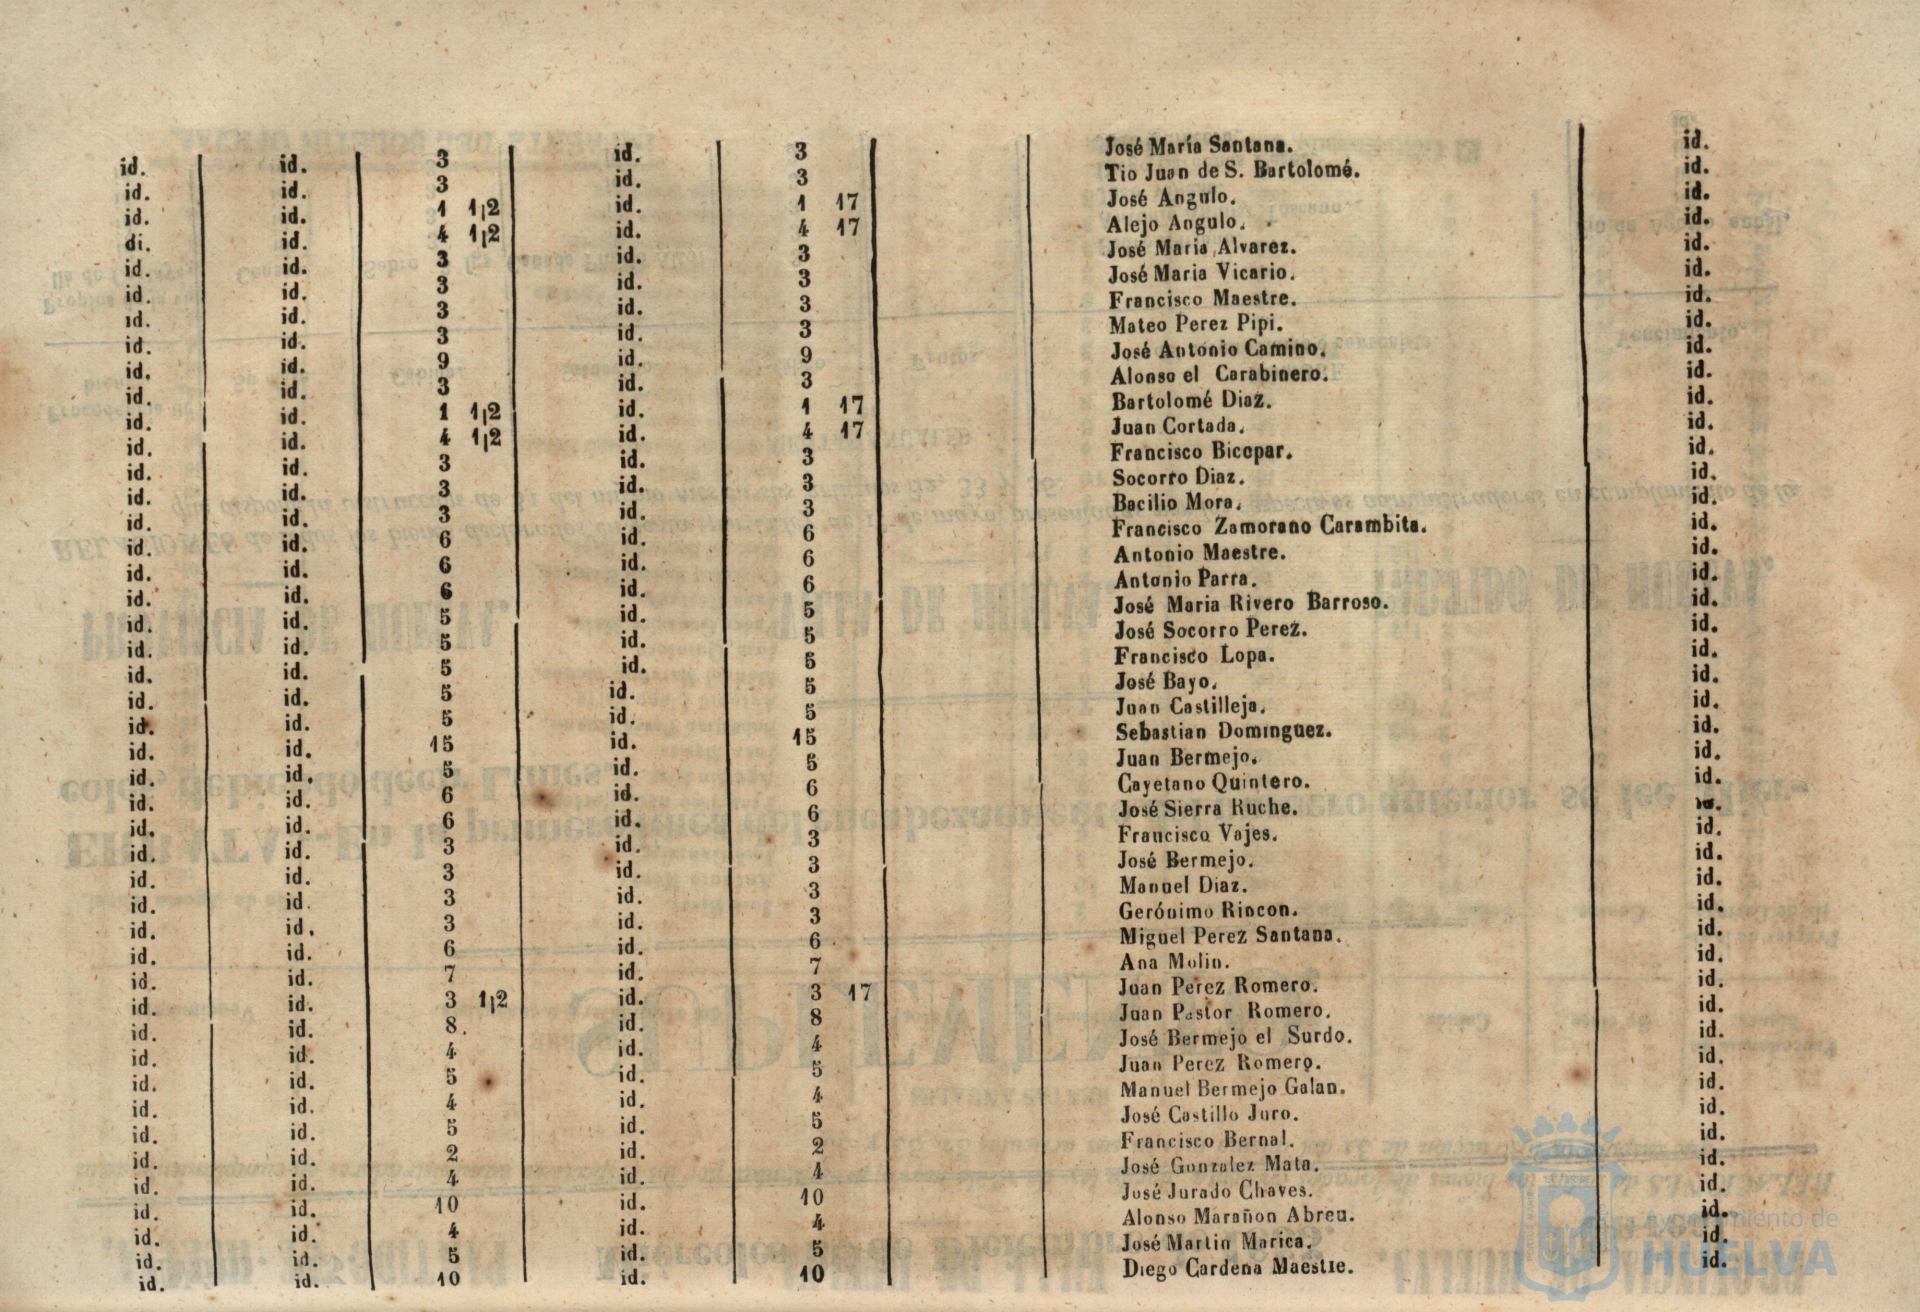 id. id. 3 id. 3 José María Santana. id.
id. id. 3 id. 3 Tio Juan de S. Bartolomé. id.
id. id. 1 1|2 id. 1 17 José Angulo. id.
di. id. 4 1|2 id. 4 17 Alejo Angulo. id.
id. id. 3 id. 3 José Maria Alvarez. id.
id. id. 3 id. 3 José Maria Vicario. id.
id. id. 3 id. 3 Francisco Maestre. id.
id. id. 3 id. 3 Mateo Perez Pipi. id.
id. id. 9 id. 9 José Antonio Camino. id.
id. id. 3 id. 3 Alonso el Carabinero. id.
id. id. 1 1|2 id. 1 17 Bartolomé Diaz. id.
id. id. 4 1|2 id. 4 17 Juan Cortada. id.
id. id. 3 id. 3 Francisco Bicopar. id.
id. id. 3 id. 3 Socorro Diaz. id.
id. id. 3 id. 3 Bacilio Mora. id.
id. id. 6 id. 6 Francisco Zamorano Carambita. id.
id. id. 6 id. 6 Antonio Maestre. id.
id. id. 6 id. 6 Antonio Parra. id.
id. id. 5 id. 5 José Maria Rivero Barroso. id.
id. id. 5 id. 5 José Socorro Perez. id.
id. id. 5 id. 5 Francisco Lopa. id.
id. id. 5 id. 5 José Bayo. id.
id. id. 5 id. 5 Juan Castilleja. id.
id. id. 15 id. 15 Sebastian Dominguez. id.
id. id. 5 id. 5 Juan Bermejo. id.
id. id. 6 id. 6 Cayetano Quintero. id.
id. id. 6 id. 6 José Sierra Ruche. id.
id. id. 3 id. 3 Francisco Vajes. id.
id. id. 3 id. 3 José Bermejo. id.
id. id. 3 id. 3 Manuel Diaz. id.
id. id. 3 id. 3 Gerónimo Rincon. id.
id. id. 6 id. 6 Miguel Perez Santana. id.
id. id. 7 id. 7 Ana Molin. id.
id. id. 3 1|2 id. 3 17 Juan Perez Romero. id.
id. id. 8. id. 8 Juan Pastor Romero. id.
id. id. 4 id. 4 José Bermejo el Surdo. id.
id. id. 5 id. 5 Juan Perez Romero. id.
id. id. 4 id. 4 Manuel Bermejo Galan. id.
id. id. 5 id. 5 José Castillo Juro. id.
id. id. 2 id. 2 Francisco Bernal. id.
id. id. 4 id. 4 José Gonzalez Mata. id.
id. id. 10 id. 10 José Jurado Chaves. id.
id. id. 4 id. 4 Alonso Marañon Abreu. id.
id. id. 5 id. 5 José Martin Marica. id.
id. id. 10 id. 10 Diego Cardena Maestre. id.
Ayuntamiento de
HUELVA